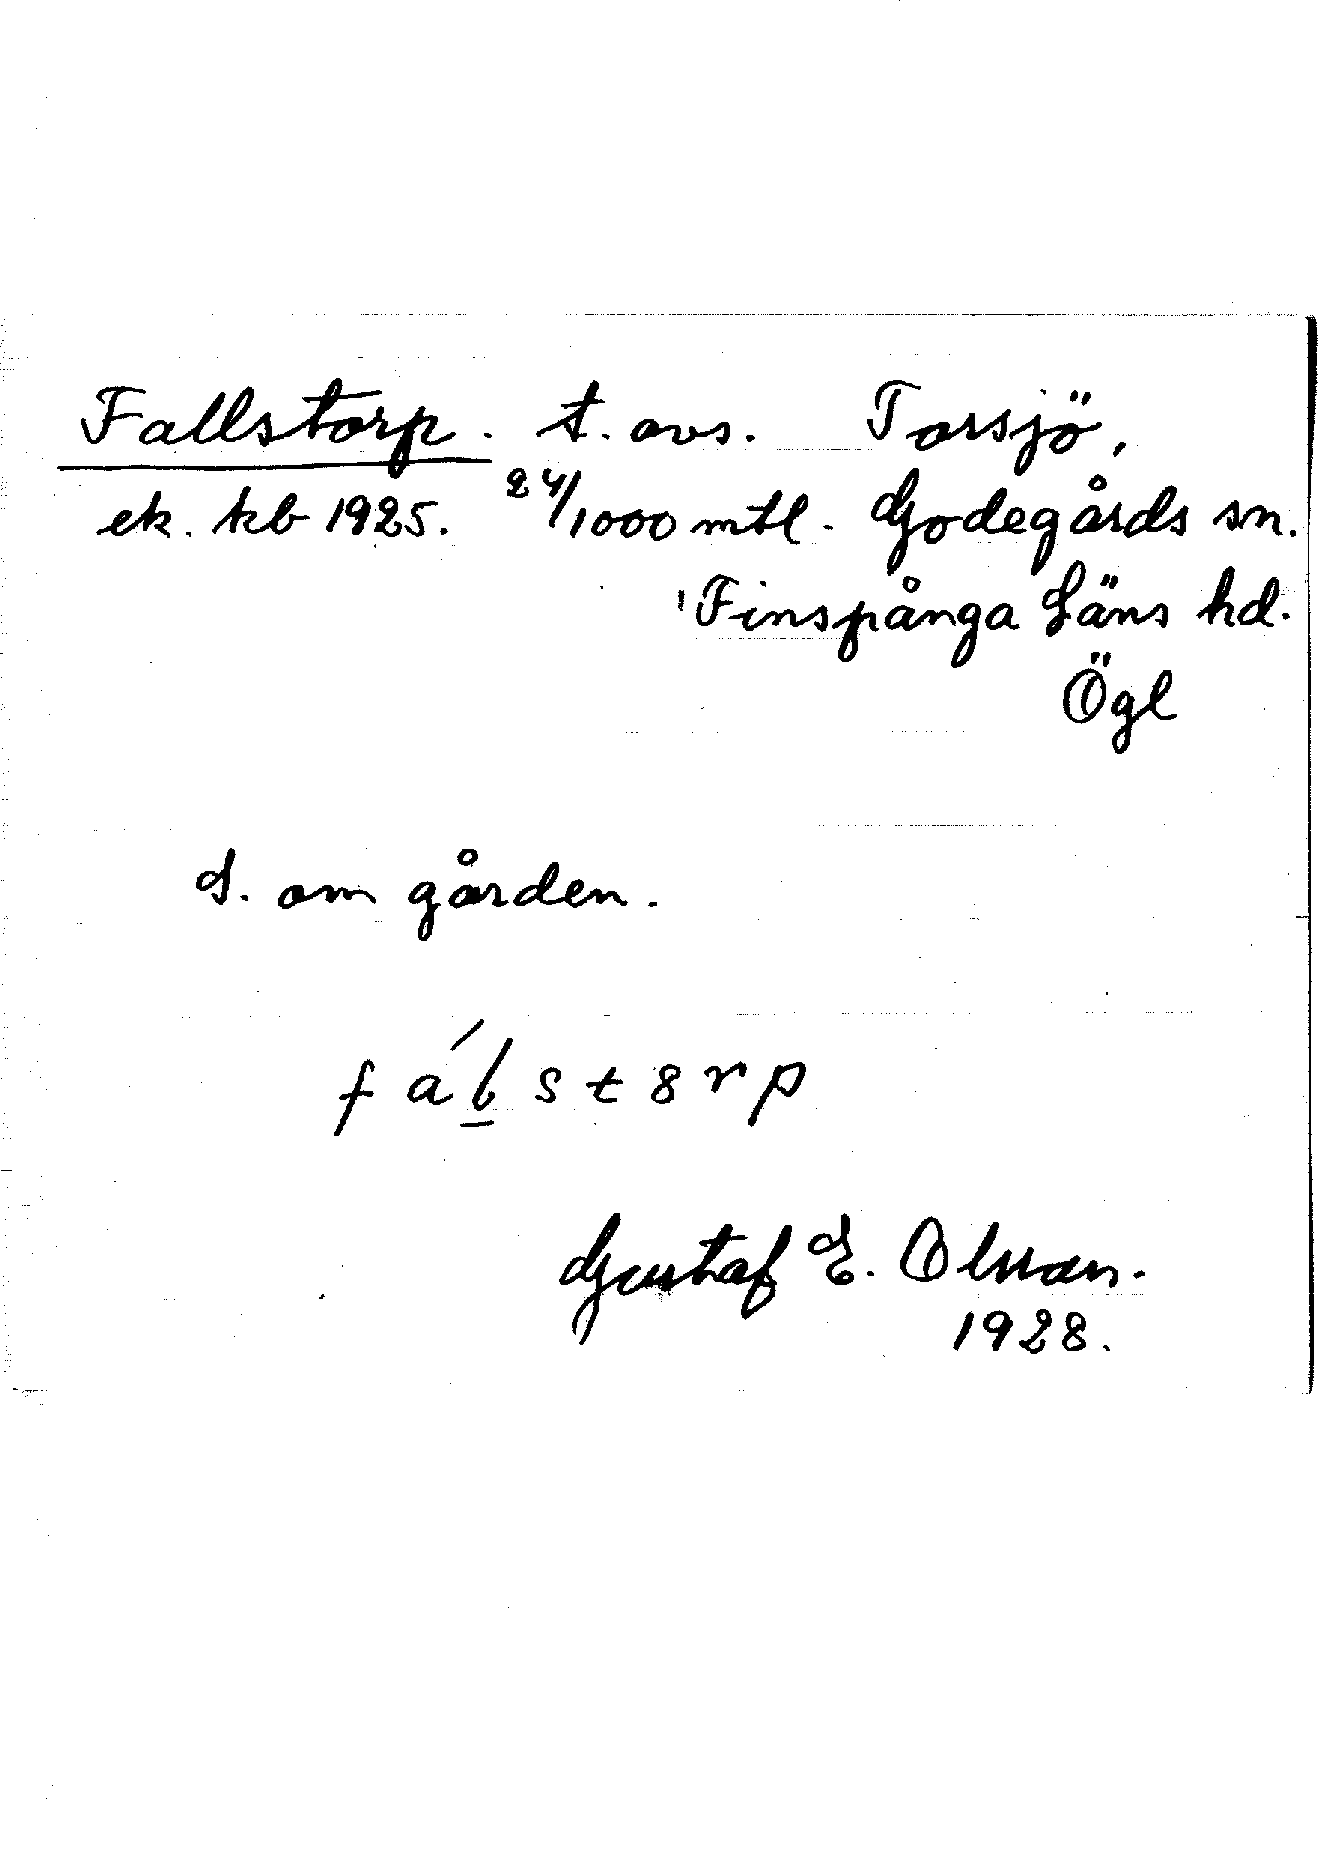 Fallstorp. t. avs. Torsjö,
ek. kb 1925. 24/1000 mtl. Godegårds sn.
Finspånga Läns hd.
Ögl
S. om gården.
fálst8rp
Gustaf E. Olsson.
1928.